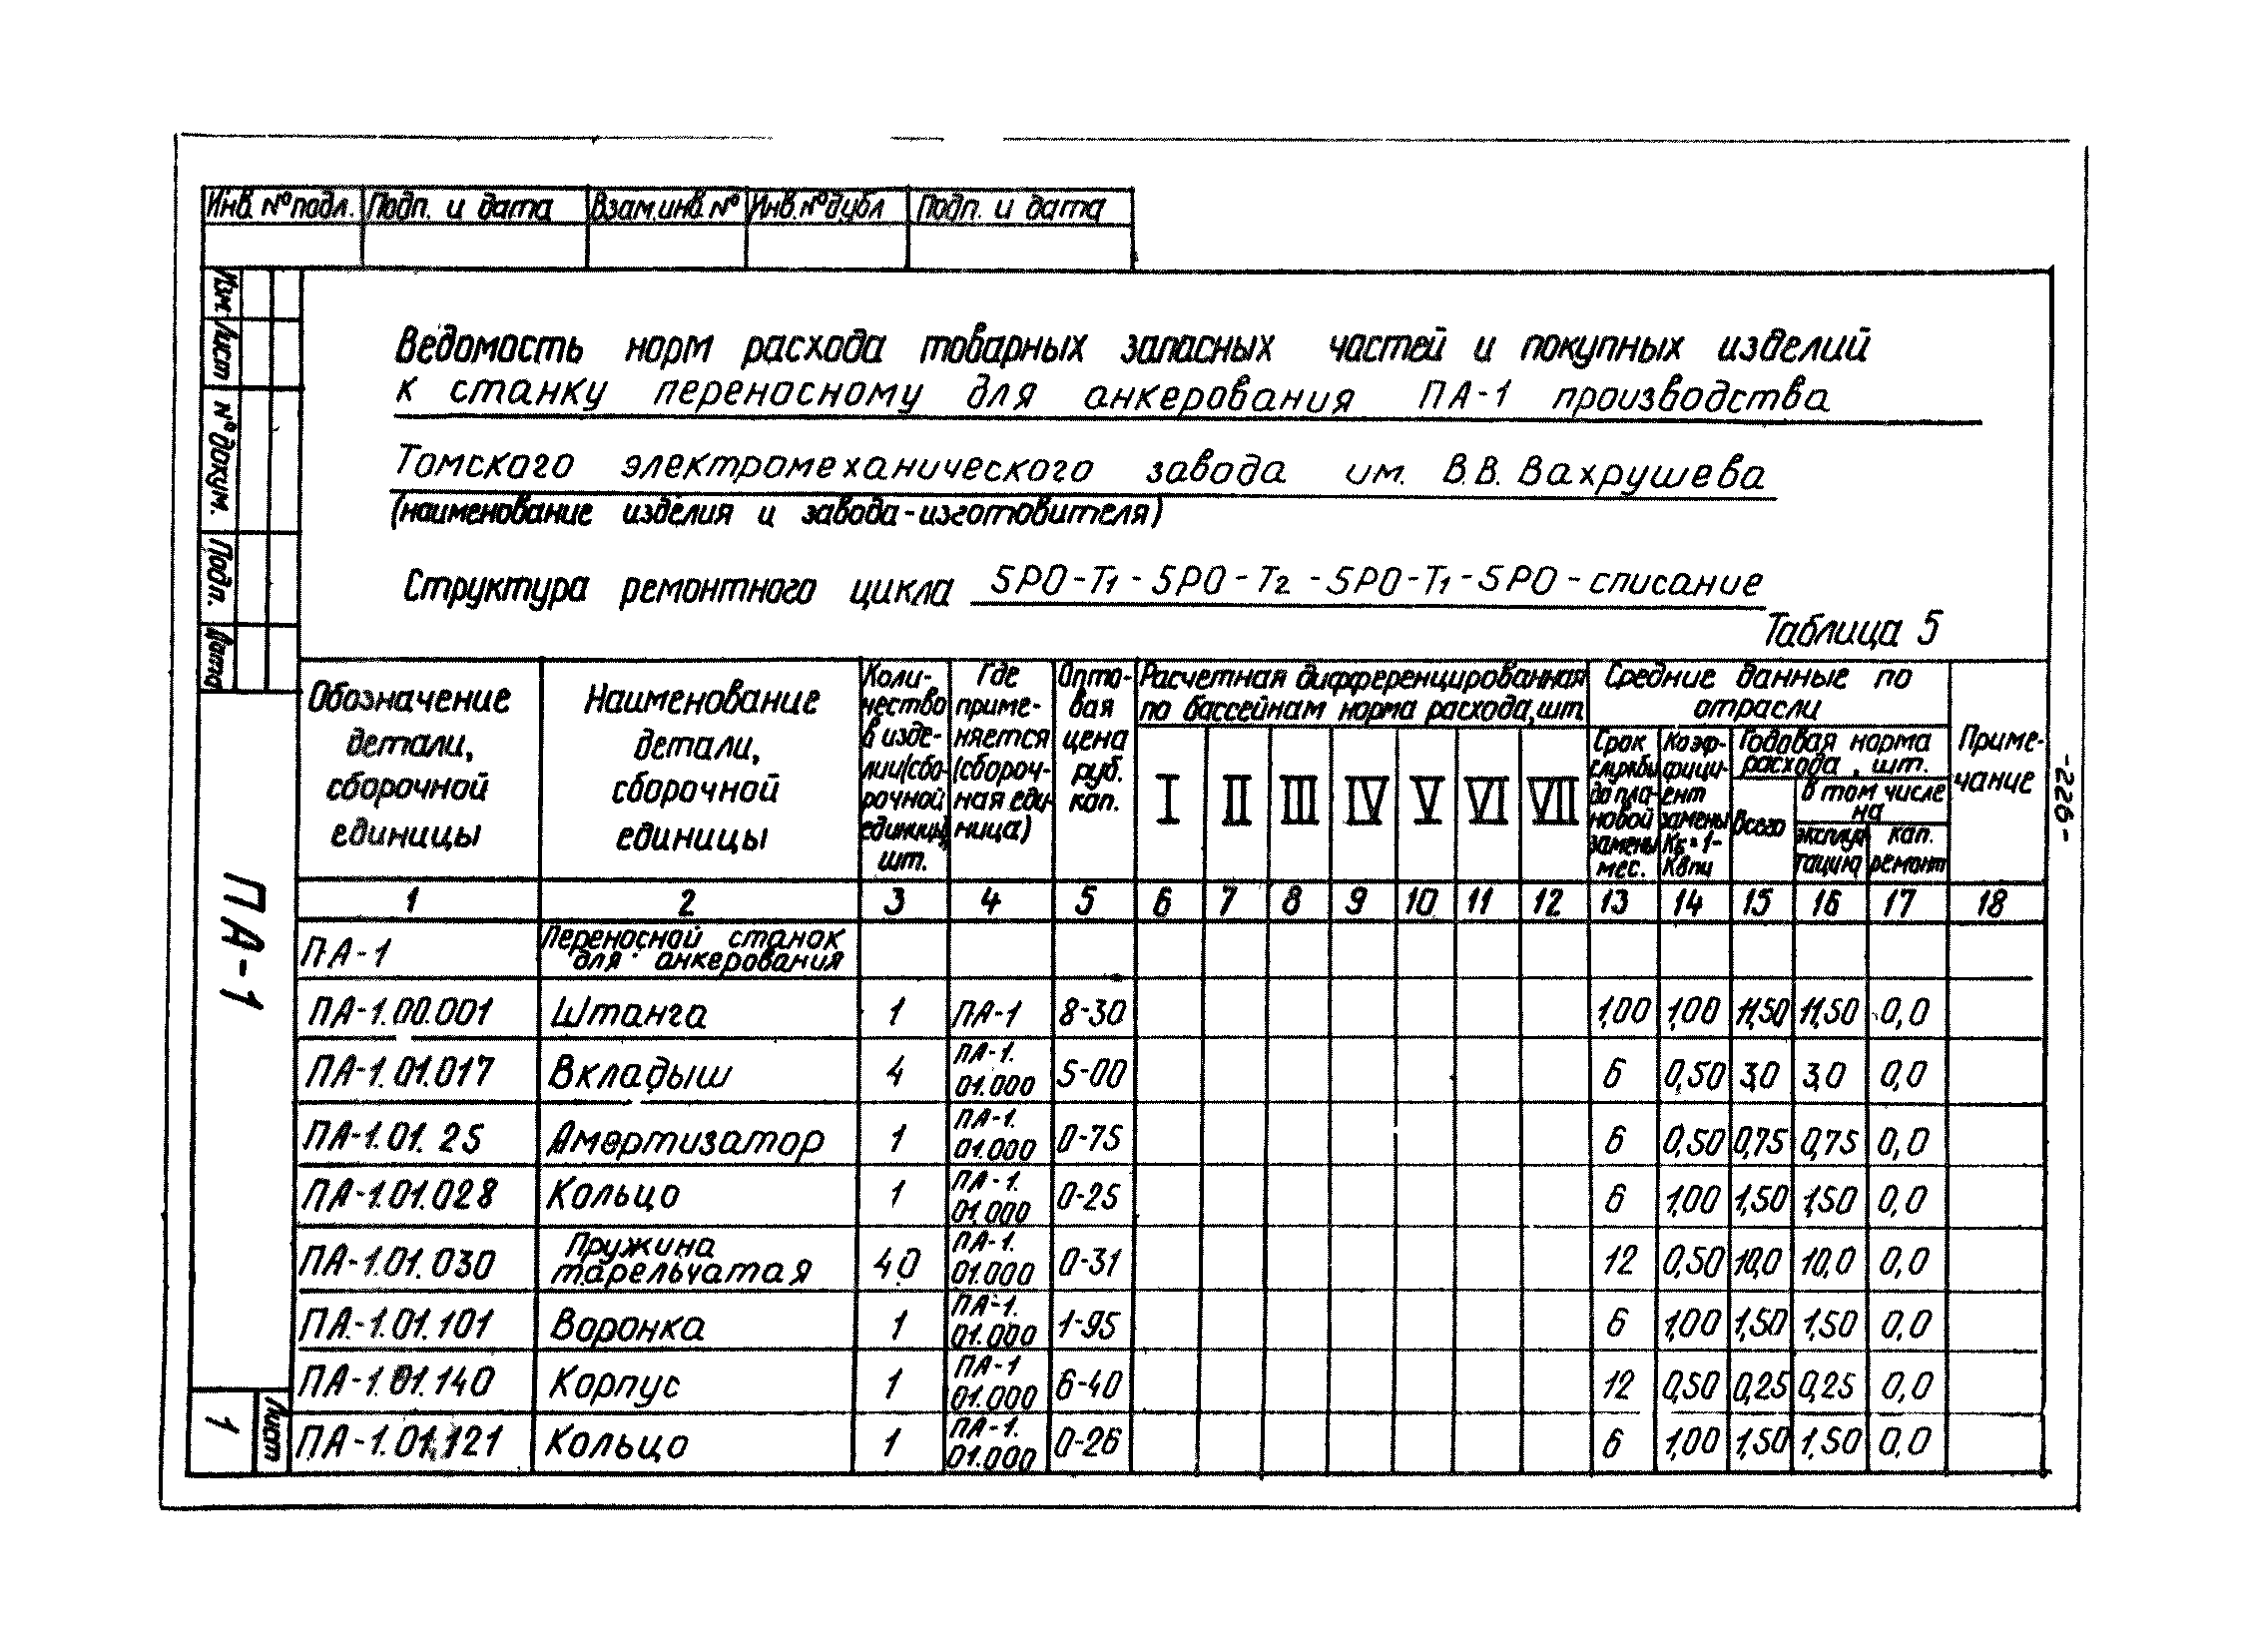 Инв. № подл. Подп. и дата Взам. инв № Инв. № дубл Подп. и дата
Изм. Лист № докум. Подп. Дата
Ведомость норм расхода товарных запасных частей и покупных изделий
к станку переносному для анкерования ПА-1 производства
Томского электромеханического завода им. В.В. Вахрушева
(наименование изделия и завода-изготовителя)
Структура ремонтного цикла 5РО-Т1 - 5РО-Т2 - 5РО-Т1 - 5РО - списание
Таблица 5
Обозначение
детали,
сборочной
единицы
Наименование
детали,
сборочной
единицы
Коли-
чество
в изде-
лии(сбо-
рочной
единицы)
шт.
Где
приме-
няется
(сбороч-
ная еди-
ница)
Опто-
вая
цена
руб.
коп.
Расчетная дифференцированная
по бассейнам норма расхода, шт.
I II III IV V VI VII
Средние данные по
отрасли
Срок
службы
до пла-
новой
замены
мес.
Коэф-
фици-
ент
замены
Кб=1-
Квпи
Годовая норма
расхода, шт.
Всего
в том числе
на
эксплуа-
тацию
кап.
ремонт
Приме-
чание
1 2 3 4 5 6 7 8 9 10 11 12 13 14 15 16 17 18
ПА-1 Переносной станок
для анкерования
ПА-1.00.001 Штанга 1 ПА-1 8-30 1,00 1,00 11,50 11,50 0,0
ПА-1.01.017 Вкладыш 4 ПА-1.
01.000 5-00 6 0,50 3,0 3,0 0,0
ПА-1.01. 25 Амортизатор 1 ПА-1.
01.000 0-75 6 0,50 0,75 0,75 0,0
ПА-1.01.028 Кольцо 1 ПА-1.
01.000 0-25 6 1,00 1,50 1,50 0,0
ПА-1.01.030 Пружина
тарельчатая 40 ПА-1.
01.000 0-31 12 0,50 10,0 10,0 0,0
ПА-1.01.101 Воронка 1 ПА-1.
01.000 1-95 6 1,00 1,50 1,50 0,0
ПА-1.01.140 Корпус 1 ПА-1
01.000 6-40 12 0,50 0,25 0,25 0,0
ПА-1.01.121 Кольцо 1 ПА-1.
01.000 0-26 6 1,00 1,50 1,50 0,0
ПА-1
Лист
1
-226-